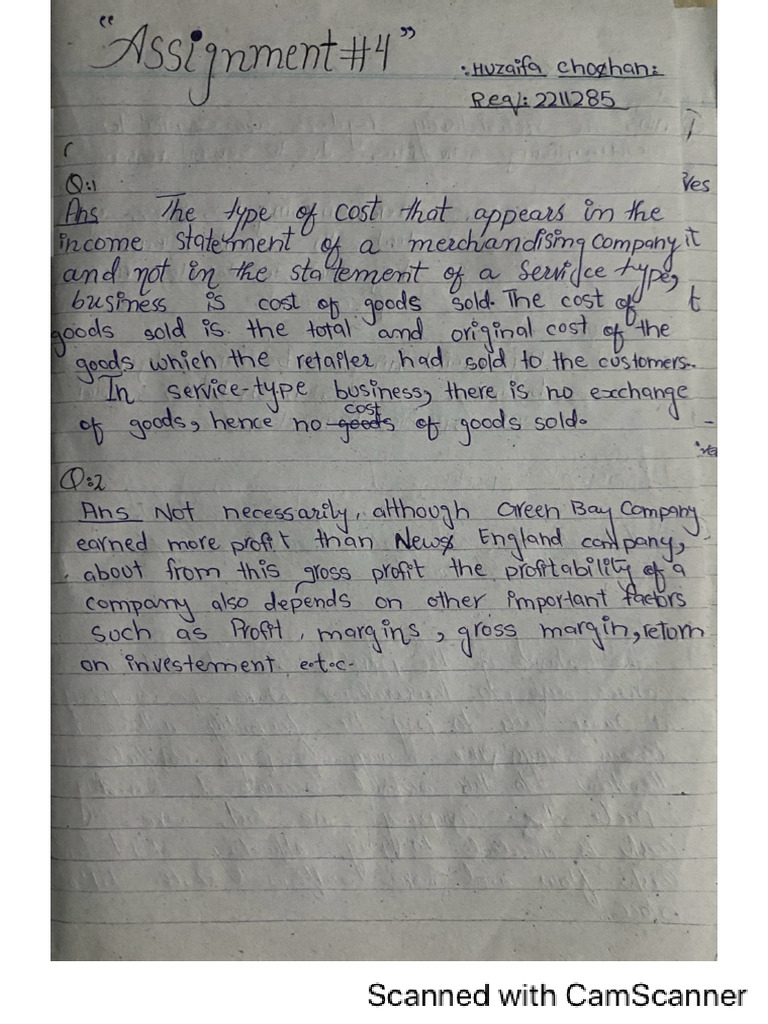 "Assignment #4"
: Huzaifa Choghan:
Reg/: 2211285
Q:1
Yes
Ans The type of cost that appears in the
income statement of a merchandising company it
and not in the statement of a service type,
business is cost of goods sold. The cost of t
goods sold is the total and original cost of the
goods which the retailer had sold to the customers..
In service-type business, there is no exchange
of goods, hence no goods cost of goods sold.
Q:2
Ans Not necessarily, although Green Bay Company
earned more profit than News England company,
about from this gross profit the profitability of a
company also depends on other important factors
such as Profit, margins, gross margin, return
on investement e.t.c.
Scanned with CamScanner